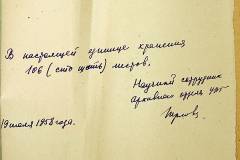 В настоящей единице хранения
106 (сто шесть) листов.
Научный сотрудник
архивного отдела
19 июля 1958 года.